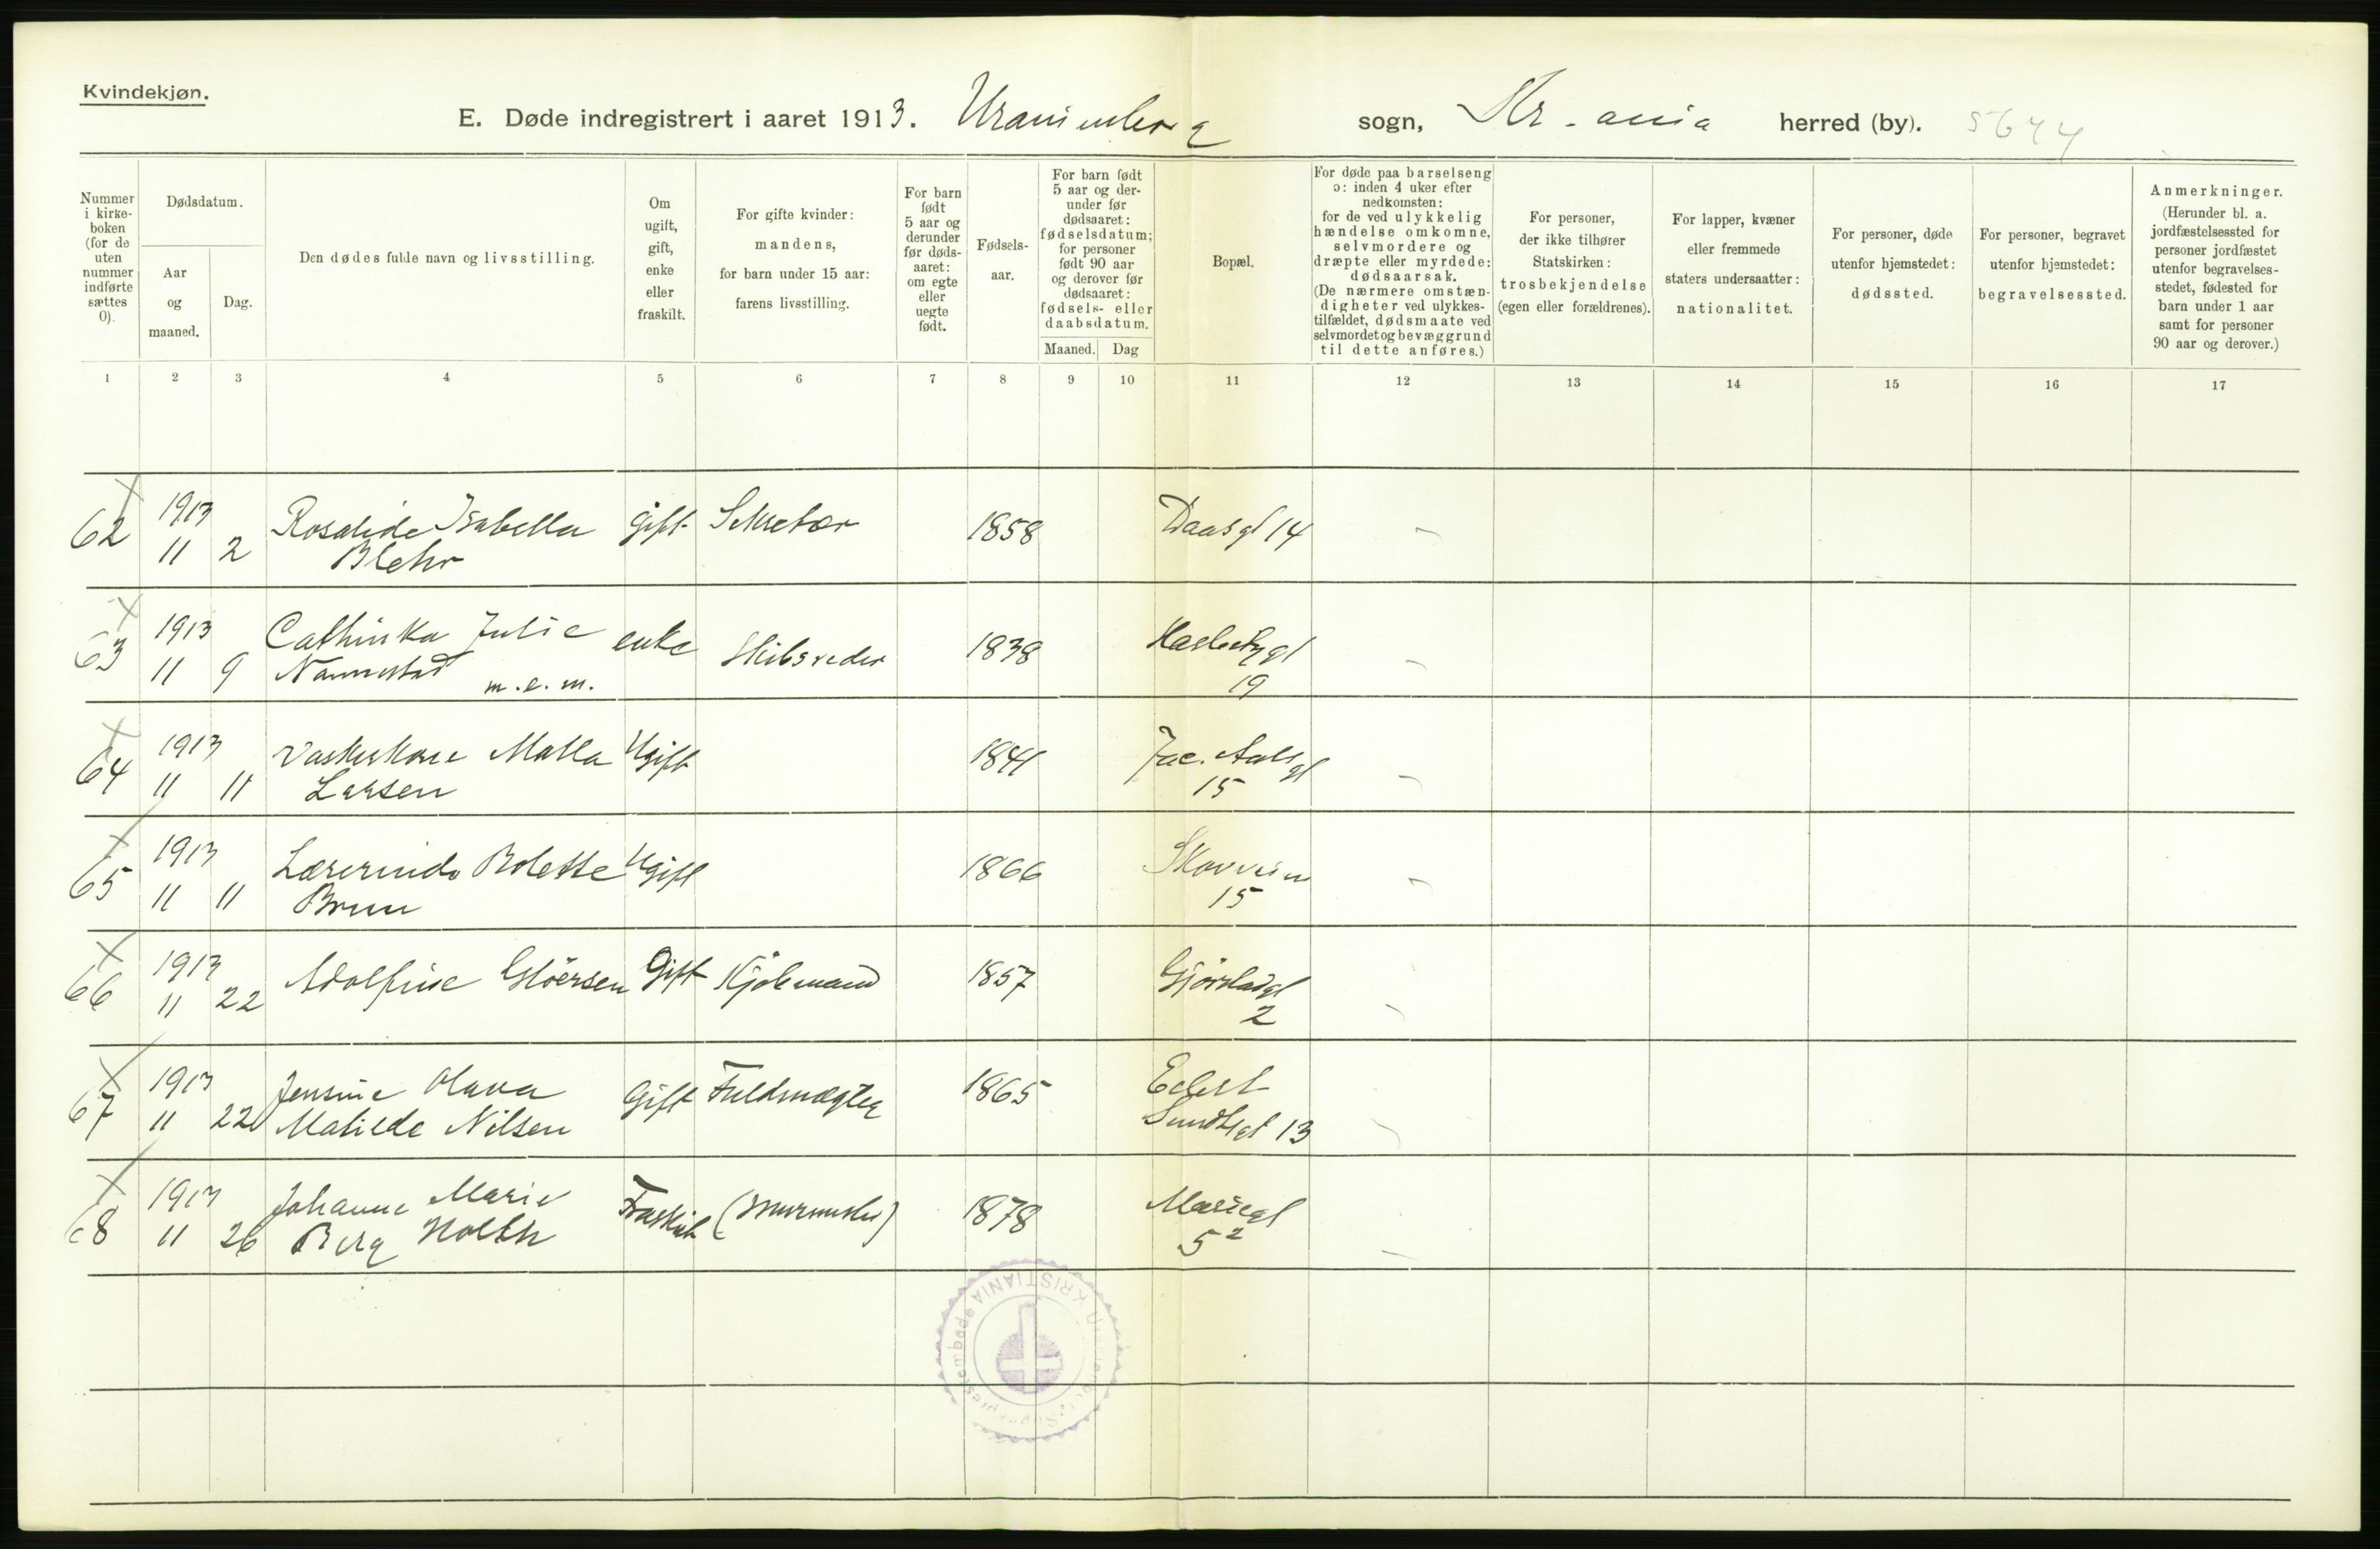 Kvindekjøn.
E. Døde indregistrert i aaret 1913. Uranienborg sogn, Kr.ania herred (by). 5644
Nummer i kirke-boken (for de uten nummer indførte sættes 0).
Dødsdatum.
Aar og maaned.
Dag.
Den dødes fulde navn og livsstilling.
Om ugift, gift, enke eller fraskilt.
For gifte kvinder: mandens, for barn under 15 aar: farens livsstilling.
For barn født 5 aar og derunder før døds-aaret: om egte eller uegte født.
Fødsels-aar.
For barn født 5 aar og der-under før dødsaaret: fødselsdatum; for personer født 90 aar og derover før dødsaaret: fødsels- eller daabsdatum.
Maaned. Dag
Bopæl.
For døde paa barselseng ɔ: inden 4 uker efter nedkomsten: for de ved ulykkelig hændelse omkomne, selvmordere og dræpte eller myrdede: dødsaarsak. (De nærmere omstæn-digheter ved ulykkes-tilfældet, dødsmaate ved selvmordet og bevæggrund til dette anføres.)
For personer, der ikke tilhører Statskirken: trosbekjendelse (egen eller forældrenes).
For lapper, kvæner eller fremmede staters undersaatter: nationalitet.
For personer, døde utenfor hjemstedet: dødssted.
For personer, begravet utenfor hjemstedet: begravelsessted.
Anmerkninger. (Herunder bl. a. jordfæstelsessted for personer jordfæstet utenfor begravelses-stedet, fødested for barn under 1 aar samt for personer 90 aar og derover.)
1 2 3 4 5 6 7 8 9 10 11 12 13 14 15 16 17
62 1913 Rosalide Isabella gift Sekretær 1858 Daasgt 14
11 2 Blehr
63 1913 Cathinka Julie enke Skibsreder 1838
11 9 Nannestad m.e.m. 19
64 1913 Vaskekone Malla Ugift 1841 Jac. Aalls gt
11 11 Larsen 15
65 1913 Lærerinde Bolette Ugift 1866 Skovvein
11 11 Brun 15
66 1913 Adolfine Gløersen Gift Kjøbmand 1857 Gjörstadgt
11 22 2
67 1913 Jensine Olava Gift Fuldmægtig 1865 Eilert
11 22 Matilde Nilsen Sundtsgt 13
68 1913 Johanne Marie Fraskilt (Murmester) 1878 Mariegt
11 26 Berg Holth 5²
KRISTIANIA